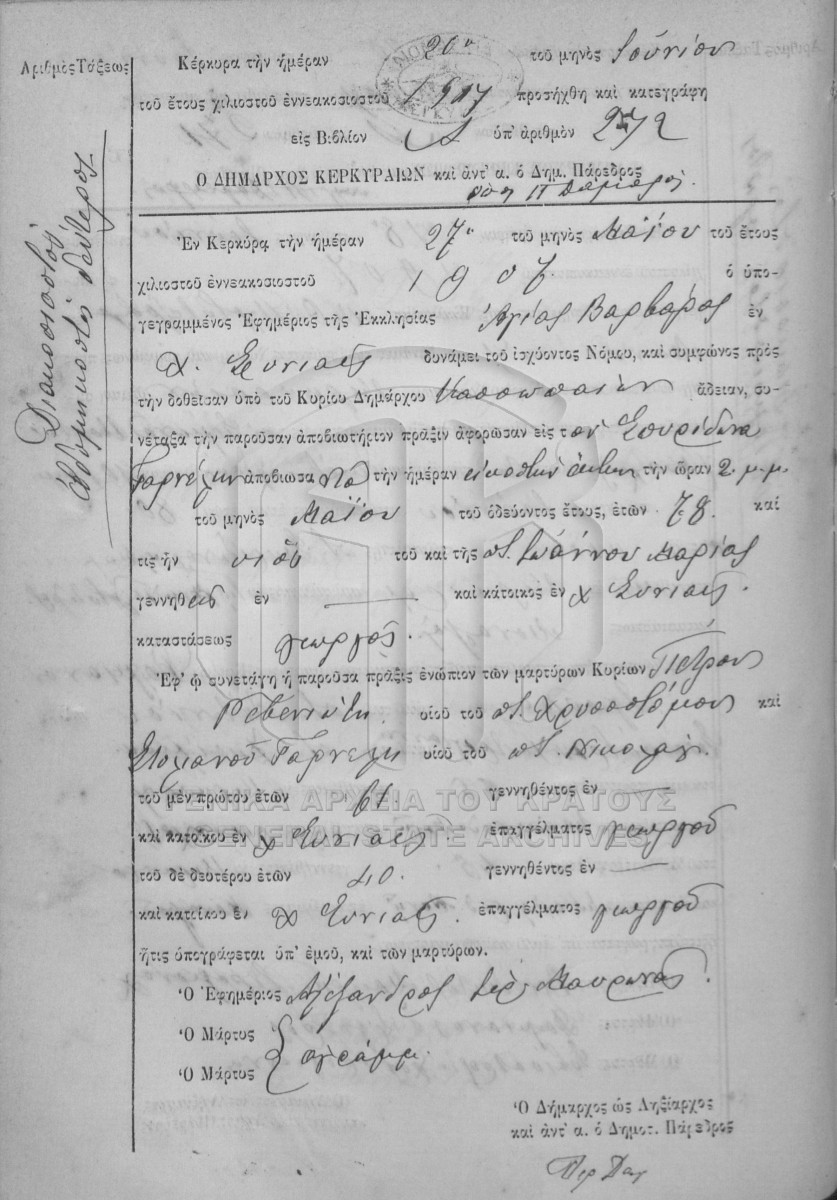 Ἀριθμὸς Τάξεως
Διακοσιοστὸς
ἑβδομηκοστὸς δεύτερος
Κέρκυρα τὴν ἡμέραν 20ην τοῦ μηνὸς Ἰουνίου
τοῦ ἔτους χιλιοστοῦ ἐννεακοσιοστοῦ 1907 προσήχθη καὶ κατεγράφη
εἰς Βιβλίον Α ὑπ' ἀριθμὸν 272
Ο ΔΗΜΑΡΧΟΣ ΚΕΡΚΥΡΑΙΩΝ καὶ ἀντ' α. ὁ Δημ. Πάρεδρος
Ἐν Κερκύρᾳ τὴν ἡμέραν 27ην τοῦ μηνὸς Μαΐου τοῦ ἔτους
χιλιοστοῦ ἐννεακοσιοστοῦ 1907 ὁ ὑπο-
γεγραμμένος Ἐφημέριος τῆς Ἐκκλησίας Ἁγίας Βαρβάρας ἐν
χ. Σινιαῖς δυνάμει τοῦ ἰσχύοντος Νόμου, καὶ συμφώνος πρὸς
τὴν δοθεῖσαν ὑπὸ τοῦ Κυρίου Δημάρχου Κασσωπαίων ἄδειαν, συ-
νέταξα τὴν παροῦσαν ἀποβιωτήριον πρᾶξιν ἀφορῶσαν εἰς τὸν Σπυρίδωνα
Γαρνέλην ἀποβιώσαντα τὴν ἡμέραν εἰκοστὴν ἕκτην τὴν ὥραν 2. μ.μ.
τοῦ μηνὸς Μαΐου τοῦ ὁδεύοντος ἔτους, ἐτῶν 78. καὶ
τις ἦν υἱὸς τοῦ καὶ τῆς π. Ἰωάννου Μαρίας
γεννηθεὶς ἐν — καὶ κάτοικος ἐν χ Σινιαῖς.
καταστάσεως γεωργός.
Ἐφ' ᾧ συνετάγη ἡ παροῦσα πρᾶξις ἐνώπιον τῶν μαρτύρων Κυρίων Πέτρου
Ρεβενιώτη υἱοῦ τοῦ π. Χρυσοστόμου καὶ
Στυλιανοῦ Γαρνέλη υἱοῦ τοῦ π. Νικολάου.
τοῦ μὲν πρώτου ἐτῶν 61 γεννηθέντος ἐν —
καὶ κατοίκου ἐν χ Σινιαῖς ἐπαγγέλματος γεωργοῦ
τοῦ δὲ δευτέρου ἐτῶν 40. γεννηθέντος ἐν —
καὶ κατοίκου ἐν χ Σινιαῖς. ἐπαγγέλματος γεωργοῦ
ἥτις ὑπογράφεται ὑπ' ἐμοῦ, καὶ τῶν μαρτύρων.
Ὁ Ἐφημέριος Ἀλέξανδρος ἱερ. Μαυρωνᾶς.
Ὁ Μάρτυς
Ὁ Μάρτυς ἀγράμμ.
Ὁ Δήμαρχος ὡς Ληξίαρχος
καὶ ἀντ' α. ὁ Δημοτ. Πάρεδρος
ΓΕΝΙΚΑ ΑΡΧΕΙΑ ΤΟΥ ΚΡΑΤΟΥΣ
GENERAL STATE ARCHIVES